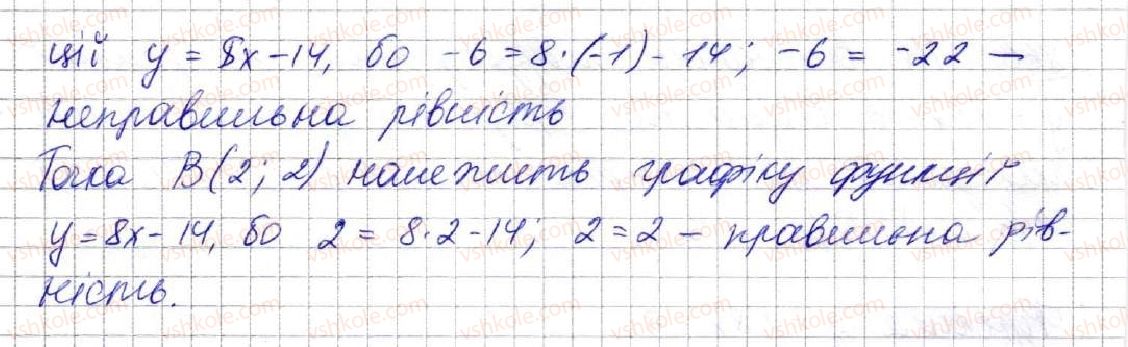 ції y = 8x - 14, бо -6 = 8·(-1) - 14; -6 = -22 —
неправильна рівність
Точка B(2; 2) належить графіку функції
y = 8x - 14, бо 2 = 8·2 - 14; 2 = 2 - правильна рів-
ність.